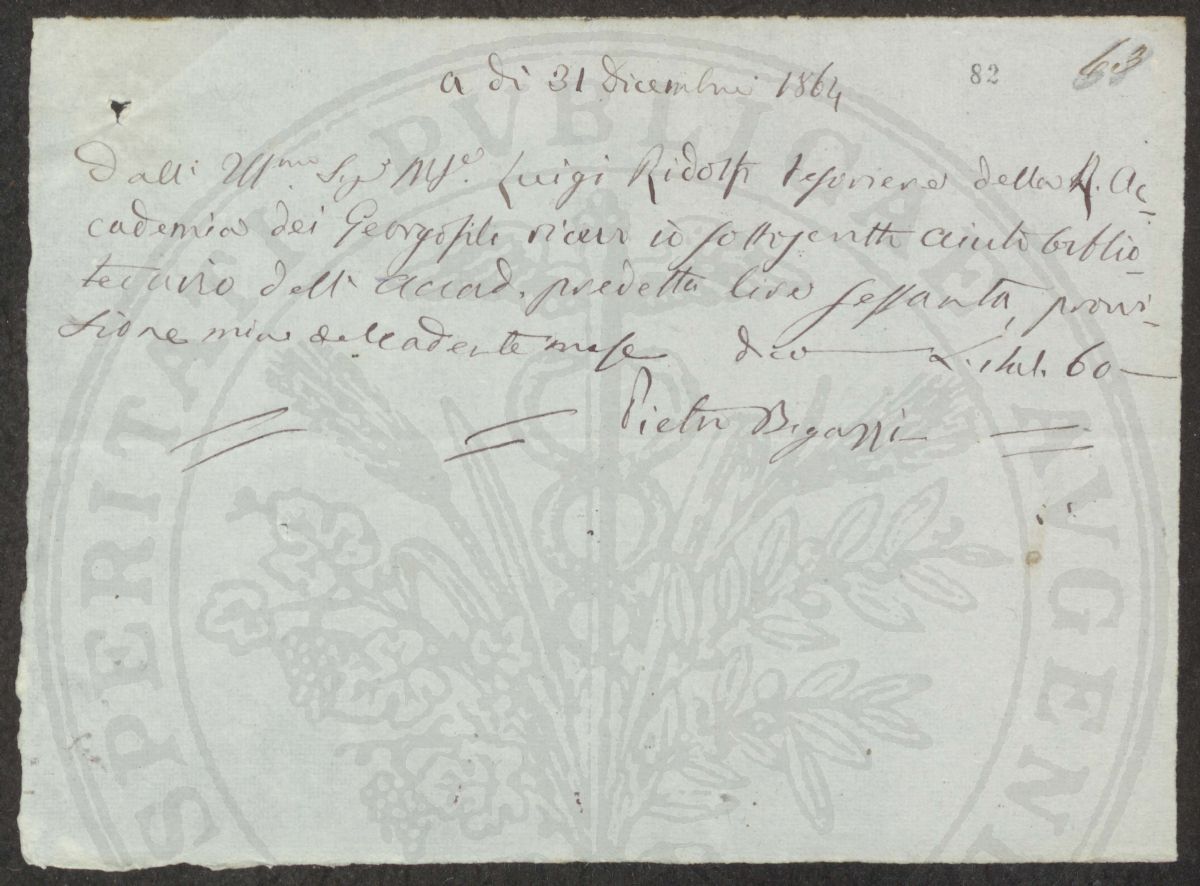 a dì 31 Dicembre 1864
82
63
Dall' Ill.mo Sig.r M.se Luigi Ridolfi Tesoriere della R. Ac-
cademia dei Georgofili ricevo io sottoscritto aiuto biblio-
tecario dell' Accad. predetta lire sessanta, provvi-
sione mia del cadente mese dico L. ital. 60 —
Pietro Bigazzi
PROSPERITATI PVBLICAE AVGENDAE